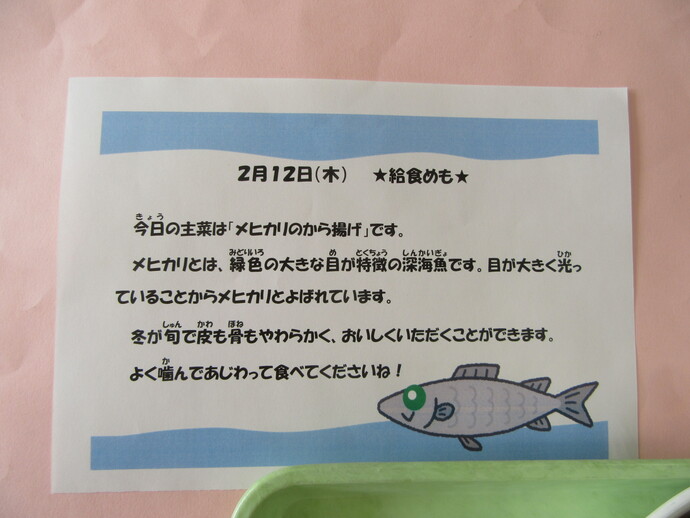 2月12日(木) ★給食めも★
今日の主菜は「メヒカリのから揚げ」です。
メヒカリとは、緑色の大きな目が特徴の深海魚です。目が大きく光っ
ていることからメヒカリとよばれています。
冬が旬で皮も骨もやわらかく、おいしくいただくことができます。
よく噛んであじわって食べてくださいね!